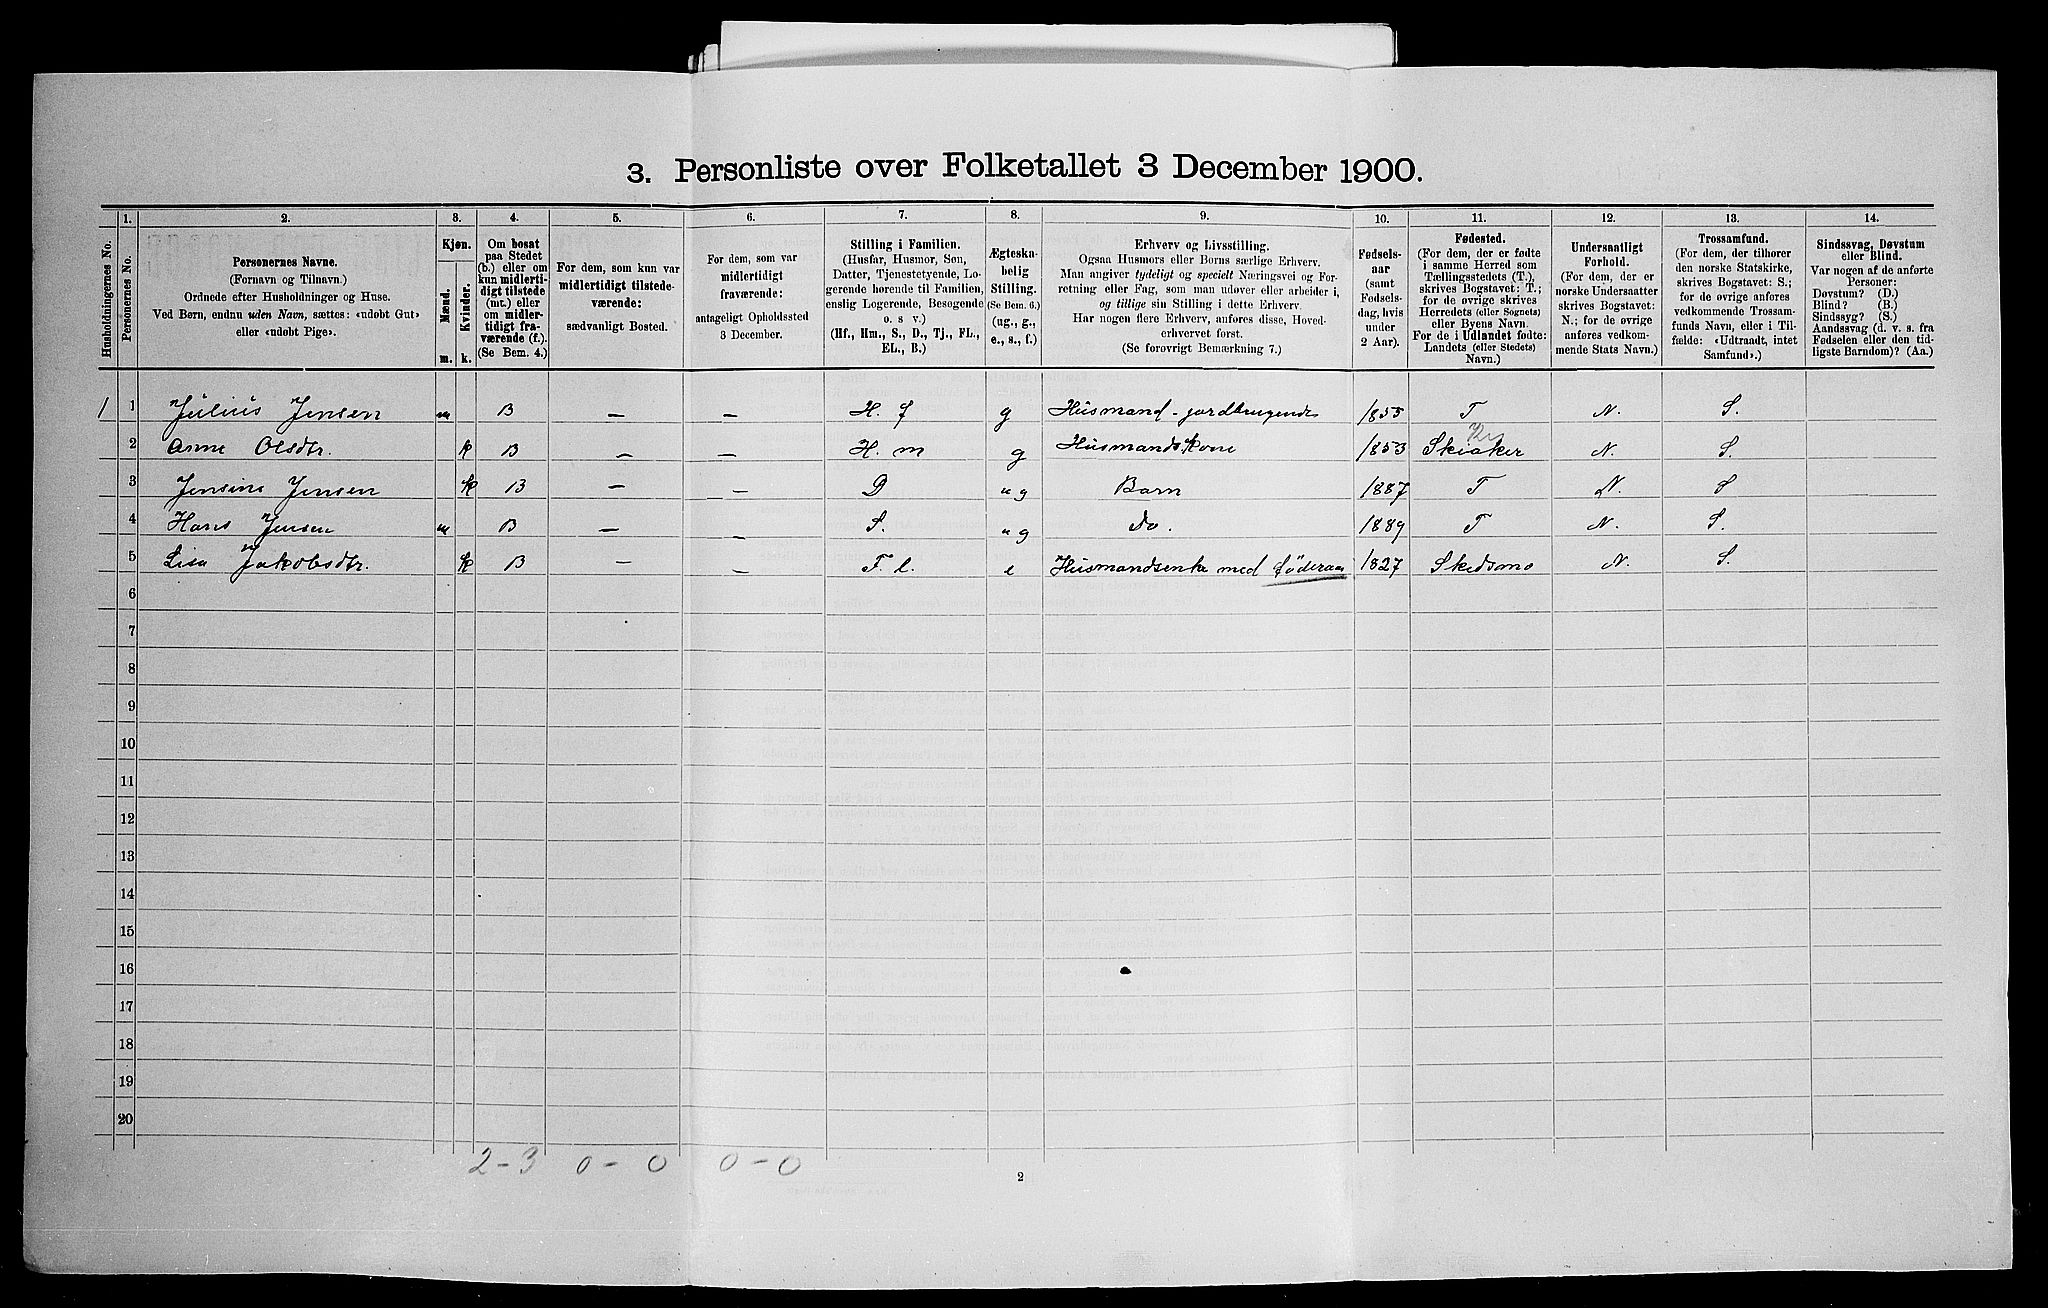 3. Personliste over Folketallet 3 December 1900.
Husholdningernes No.
1.
Personernes No.
2.
Personernes Navne.
(Fornavn og Tilnavn.)
Ordnede efter Husholdninger og Huse.
Ved Børn, endnu uden Navn, sættes: «udøbt Gut»
eller «udøbt Pige».
3.
Kjøn.
Mænd.
Kvinder.
m.
k.
4.
Om bosat
paa Stedet
(b.) eller om
kun midlerti-
digt tilstede
(mt.) eller
om midler-
tidigt fra-
værende (f.).
(Se Bem. 4.)
5.
For dem, som kun var
midlertidigt tilstede-
værende:
sædvanligt Bosted.
6.
For dem, som var
midlertidigt
fraværende:
antageligt Opholdssted
3 December.
7.
Stilling i Familien.
(Husfar, Husmor, Søn,
Datter, Tjenestetyende, Lo-
gerende hørende til Familien,
enslig Logerende, Besøgende
o. s. v.)
(Hf., Hm., S., D., Tj., FL.,
EL., B.)
8.
Ægteska-
belig
Stilling.
(Se Bem. 6.)
(ug., g.,
e., s., f.)
9.
Erhverv og Livsstilling.
Ogsaa Husmors eller Børns særlige Erhverv.
Man angiver tydeligt og specielt Næringsvei og For-
retning eller Fag, som man udøver eller arbeider i,
og tillige sin Stilling i dette Erhverv.
Har nogen flere Erhverv, anføres disse, Hoved-
erhvervet først.
(Se forøvrigt Bemærkning 7.)
10.
Fødsels-
aar
(samt
Fødsels-
dag, hvis
under
2 Aar).
11.
Fødested.
(For dem, der er fødte
i samme Herred som
Tællingsstedets (T.),
skrives Bogstavet: T.;
for de øvrige skrives
Herredets (eller Sognets)
eller Byens Navn.
For de i Udlandet fødte:
Landets (eller Stedets)
Navn.)
12.
Undersaatligt
Forhold.
(For dem, der er
norske Undersaatter
skrives Bogstavet:
N.; for de øvrige
anføres vedkom-
mende Stats Navn.)
13.
Trossamfund.
(For dem, der tilhører
den norske Statskirke,
skrives Bogstavet: S.;
for de øvrige anføres
vedkommende Trossam-
funds Navn, eller i Til-
fælde: «Udtraadt, intet
Samfund».)
14.
Sindssvag, Døvstum
eller Blind.
Var nogen af de anførte
Personer:
Døvstum? (D.)
Blind? (B.)
Sindssyg? (S.)
Aandssvag (d. v. s. fra
Fødselen eller den tid-
ligste Barndom)? (Aa.)
1 1 Julius Jensen m B — — H. f g Husmand - jordbrugende 1855 T N. S.
2 Anne Olsdtr. k B — — H. m g Husmandskone 1853 Skiaker N. S.
3 Jensine Jensen k B — — D ug Barn 1887 T N. S
4 Hans Jensen m B — — S. ug Do. 1889 T N. S.
5 Lisa Jakobsdtr. k B — — F. l. e Husmandsenke med føderaa 1827 Skedsmo N. S.
6
7
8
9
10
11
12
13
14
15
16
17
18
19
20
2-3 0-0 0-0
2